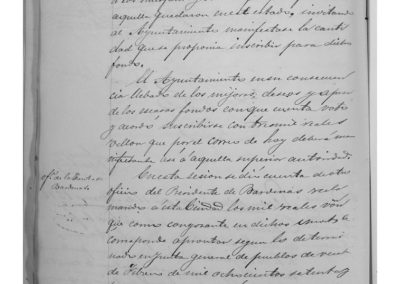 aquella quedaron en este estado, invitando
al Ayuntamiento manifestase la canti
dad que se proponia inscribir para dicho
fondo.
El Ayuntamiento en su consecuen
cia llebado de los mejores deseos y apesar
de los escasos fondos con que cuenta votó
y acordó suscribirse con tres mil reales
vellon que por el correo de hoy deberá ma
nifestarse asi á aquella superior autoridad.
of.º de la Junta de
Bardenas
En esta sesion se dió cuenta de otro
oficio del Presidente de Bardenas recla
mando á esta Ciudad los mil reales von
que como congozante en dichos montes le
corresponde aprontar segun lo determi
nado en Junta general de pueblos de veinte
de Febrero de mil ochocientos setenta y